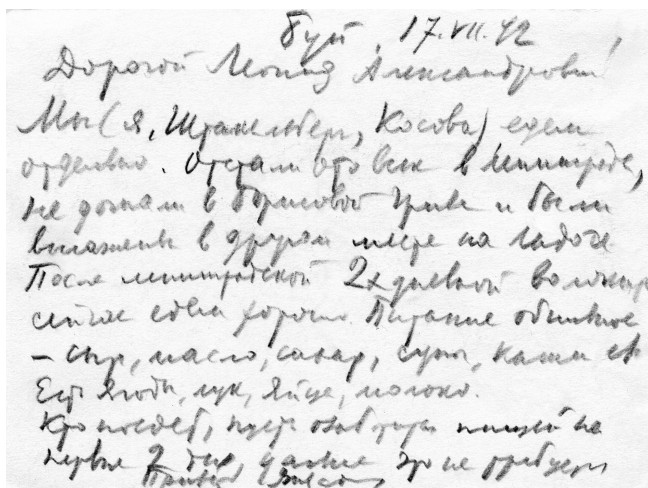 Буй, 17.VII.42
Дорогой Леонид Александрович!
Мы (я, Штакельберг, Косова) едем
отдельно. Отстали ото всех в Ленинграде,
не догнали в Борисовой Гриве и были
высажены в другом месте на Ладоге
После ленинградской 2х дневной волокиты
сейчас едем хорошо. Питание обильное
– сыр, масло, сахар, супы, каши
Есть ягоды, лук, яйца, молоко.
Кто поедет, пусть пищей на
первые 2 дня, дальше это не требуется
Привет